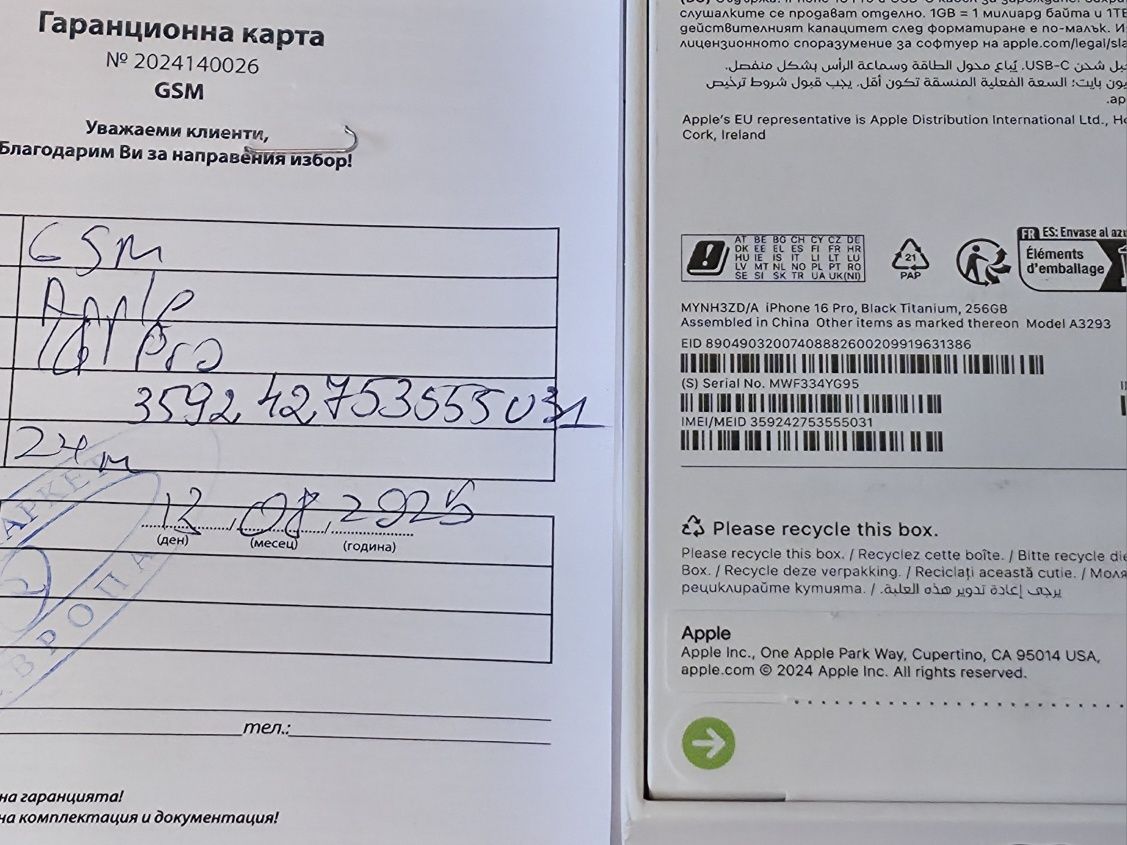 Гаранционна карта
№ 2024140026
GSM
Уважаеми клиенти,
Благодарим Ви за направения избор!
GSM
Apple
16 Pro
359242753555031
24 м
12 / 08 / 2025
(ден) (месец) (година)
АРКЕТ
ЕВРОПА
тел.:
на гаранцията!
на комплектация и документация!
слушалките се продават отделно. 1GB = 1 милиард байта и 1TB
действителният капацитет след форматиране е по-малък. И
лицензионното споразумение за софтуер на apple.com/legal/sla
شحن USB-C. يُباع محول الطاقة وسماعة الرأس بشكل منفصل.
يون بايت؛ السعة الفعلية المنسقة تكون أقل. يجب قبول شروط ترخيص
.ap
Apple's EU representative is Apple Distribution International Ltd., Ho
Cork, Ireland
AT BE BG CH CY CZ DE
DK EE EL ES FI FR HR
HU IE IS IT LI LT LU
LV MT NL NO PL PT RO
SE SI SK TR UA UK(NI)
21
PAP
FR ES: Envase al azu
Éléments
d'emballage
MYNH3ZD/A iPhone 16 Pro, Black Titanium, 256GB
Assembled in China Other items as marked thereon Model A3293
EID 89049032007408882600209919631386
(S) Serial No. MWF334YG95
IMEI/MEID 359242753555031
Please recycle this box.
Please recycle this box. / Recyclez cette boîte. / Bitte recycle die
Box. / Recycle deze verpakking. / Reciclați această cutie. / Моля
рециклирайте кутията. / يرجى إعادة تدوير هذه العلبة.
Apple
Apple Inc., One Apple Park Way, Cupertino, CA 95014 USA,
apple.com © 2024 Apple Inc. All rights reserved.